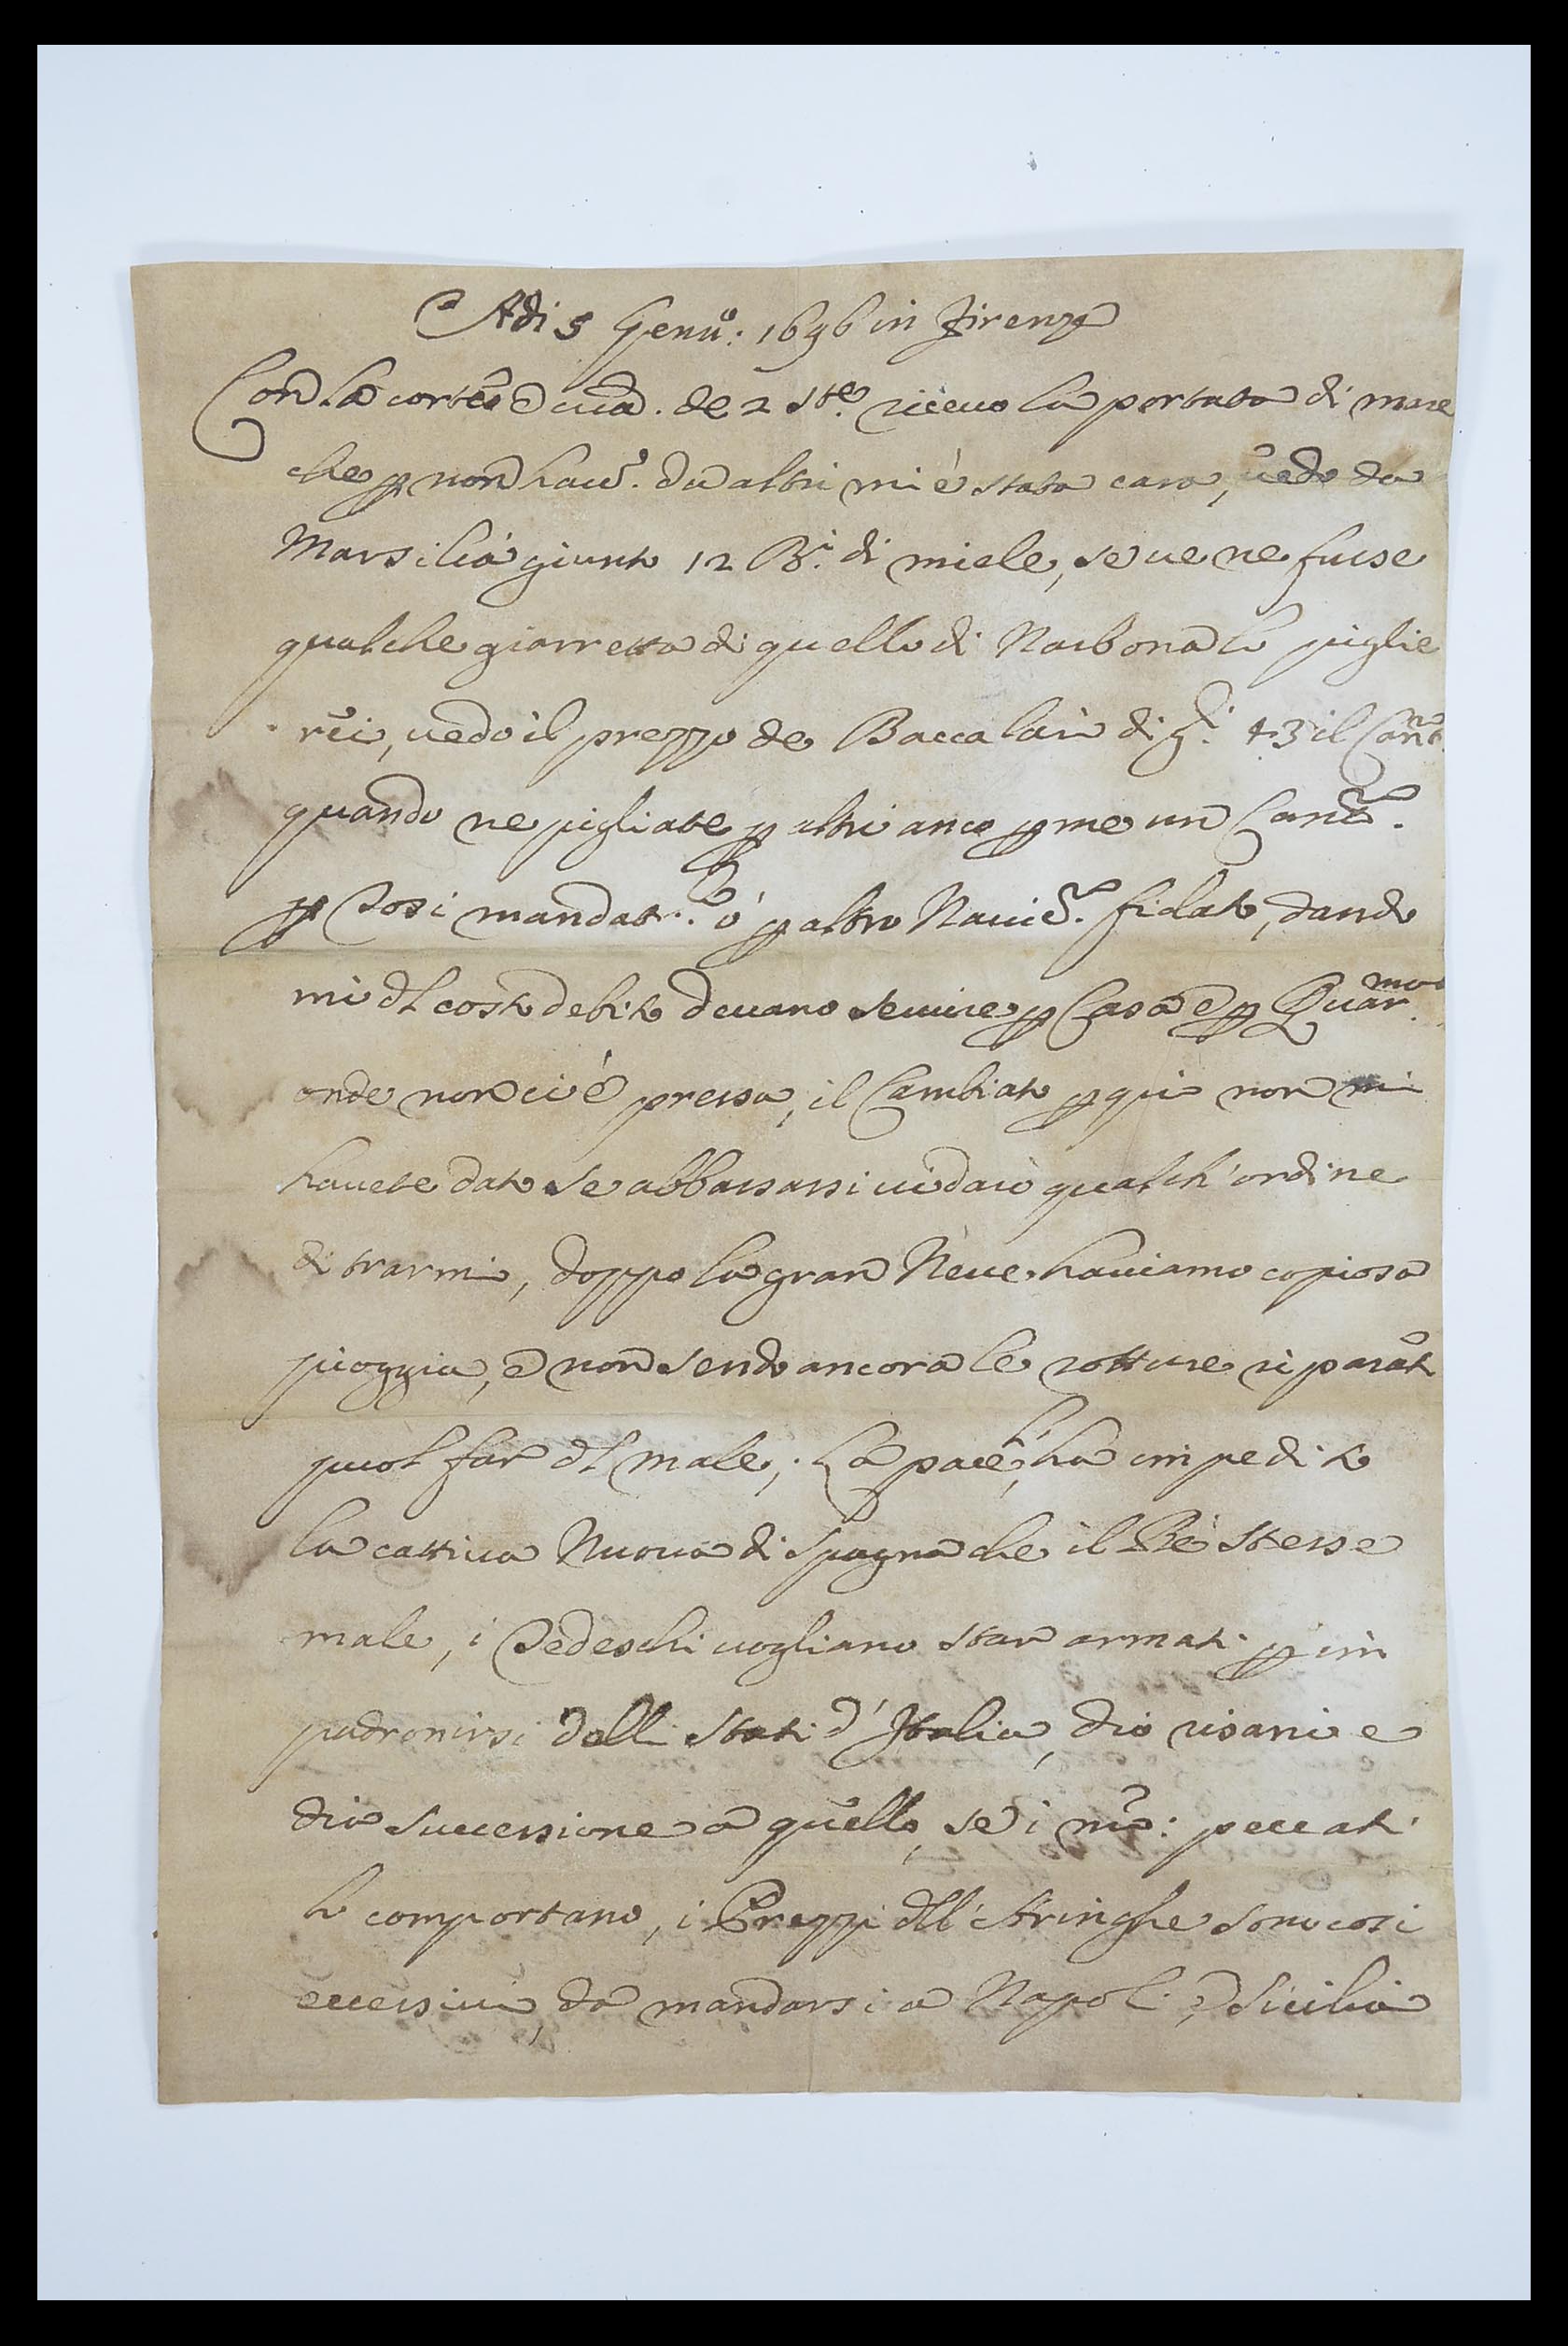 Adi 5 Genn.o: 1696 in Firenze
Con la cortese vra. de 2 ste. riceuo la portata di mare
che p non hau.r da altri mi è stata cara, uedo da
Marsilia giunto 12 B.i di miele, se ue ne fusse
qualche giarretta di quello di Narbona lo piglie
rei, uedo il prezzo de Baccalari di g.i 43 il Cant.ro
quando ne pigliate p altri anco p me un Cant.ro
p Tosi mandat. o p altro Nauic.ro fidato, dando
mi dl costo debito deuano seruire p Casa e p Quar.ma
onde non ci è pressa, il Cambiato p qui non mi
hauete dato se abbassassi ui darò qualch' ordine
di trarmi, doppo la gran Neue hauiamo copiosa
pioggia, e non sendo ancora le rotture riparate
puol far dl male; La pace, l'ha impedito
la cattiua Nuoua di Spagna che il Rè stesse
male, i Tedeschi uogliano star armati p im
padronirsi delli Stati d'Italia, dio risani e
dia successione a quello, se i nri: peccati
lo comportano, i Prezzi dll' Stringhe sono così
eccessiui, da mandarsi a Napoli, e Sicilia